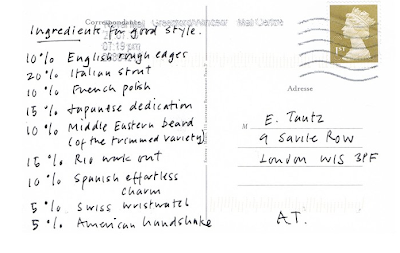 Correspondance
Greenford/Windsor Mail Centre
07:19 pm
Ingredients for good style.
10% English rough edges
20% Italian strut
10% French polish
15% Japanese dedication
10% Middle Eastern beard
(of the trimmed variety)
15% Rio work out
10% Spanish effortless
charm
5% Swiss wristwatch
5% American handshake
1st
Adresse
M
E. Tautz
9 Savile Row
London W1S 3PF
A.T.